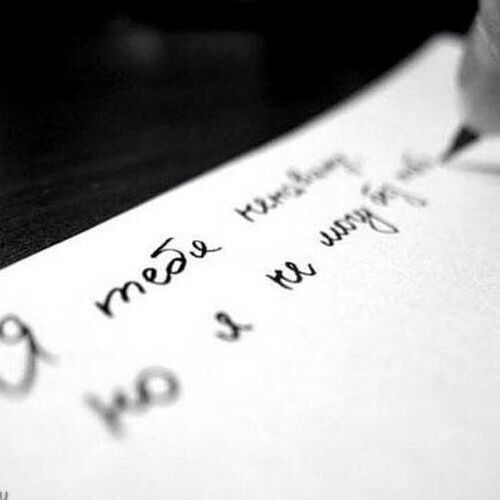 Я тебя ненавижу
но я не могу без теб